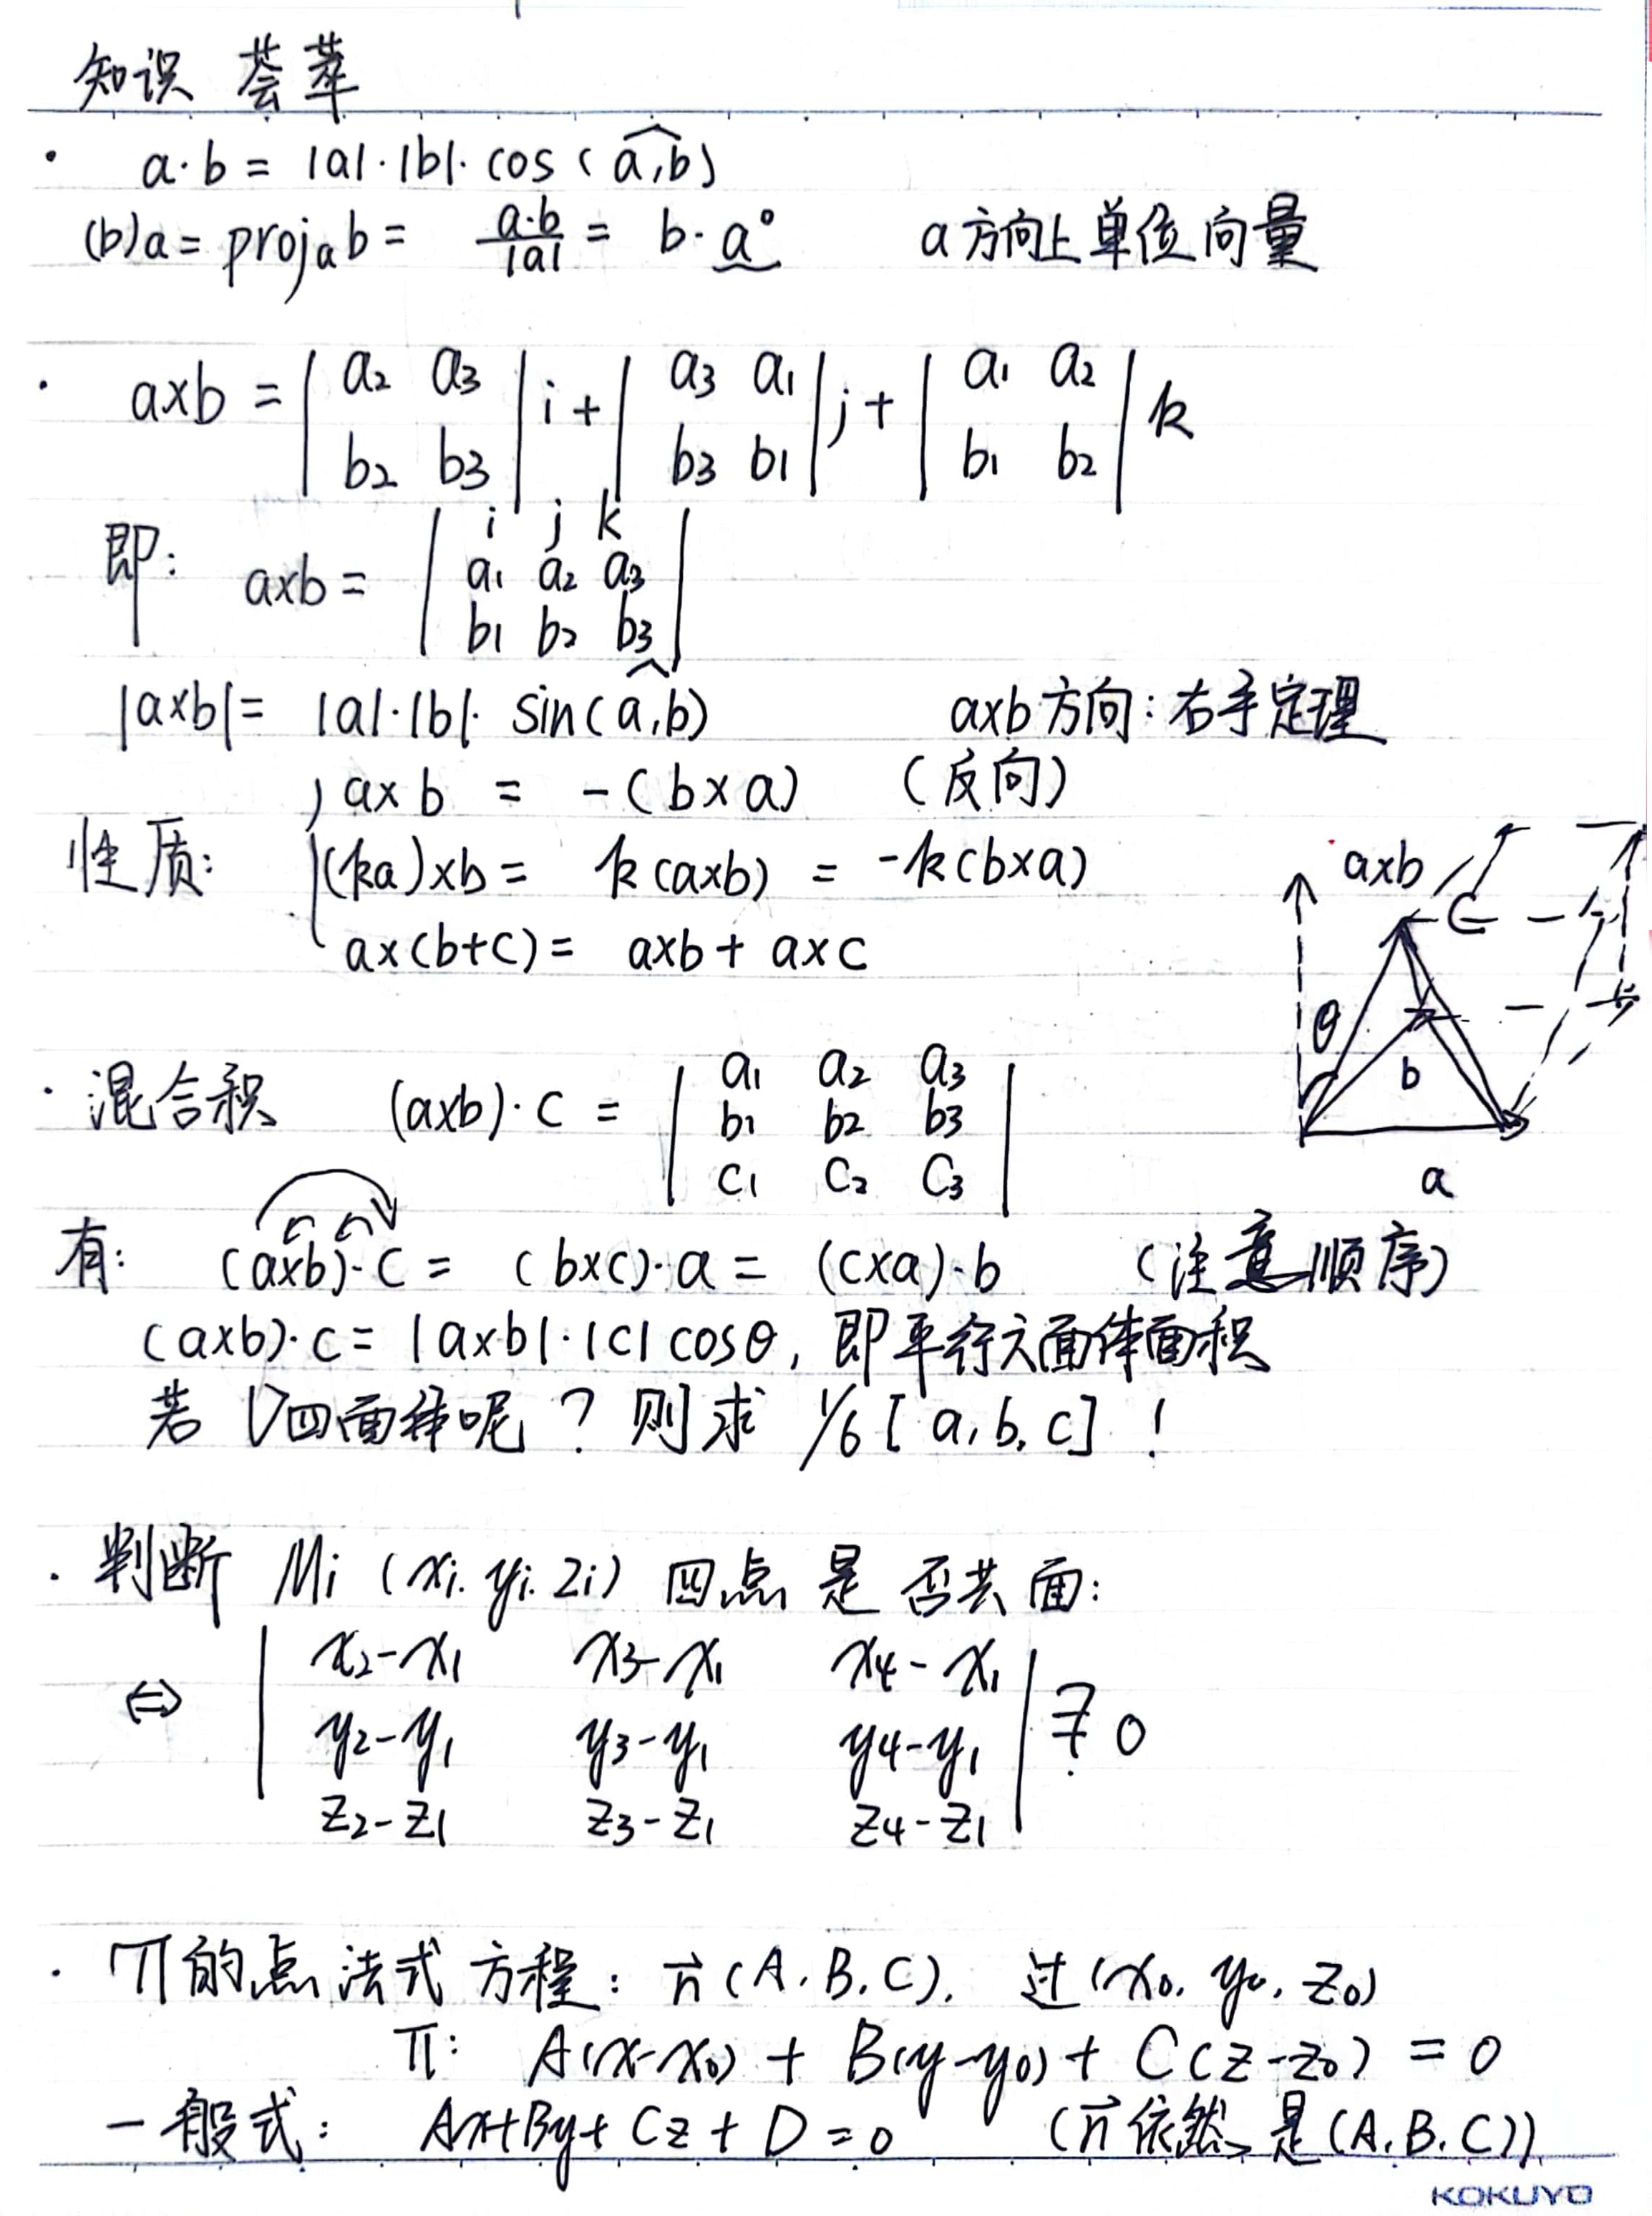 知识 荟萃
· a·b = |a|·|b|·cos(a,b)
(b)a = proj_a b = a·b/|a| = b·a° a方向上单位向量
· a×b = | a₂ a₃ ; b₂ b₃ | i + | a₃ a₁ ; b₃ b₁ | j + | a₁ a₂ ; b₁ b₂ | k
即: a×b = | i j k ; a₁ a₂ a₃ ; b₁ b₂ b₃ |
|a×b| = |a|·|b|·sin(a,b) a×b方向:右手定理
a×b = -(b×a) (反向)
性质: (ka)×b = k(a×b) = -k(b×a)
a×(b+c) = a×b + a×c
a×b
c
θ
b
a
· 混合积 (a×b)·c = | a₁ a₂ a₃ ; b₁ b₂ b₃ ; c₁ c₂ c₃ |
有: (a×b)·c = (b×c)·a = (c×a)·b (注意顺序)
(a×b)·c = |a×b|·|c|cosθ, 即平行六面体面积
若 V四面体呢? 则求 1/6[a,b,c]!
· 判断 Mi (xi.yi.zi) 四点是否共面:
⇔ | x₂-x₁ x₃-x₁ x₄-x₁
y₂-y₁ y₃-y₁ y₄-y₁ | ≟ 0
z₂-z₁ z₃-z₁ z₄-z₁
· π的点法式方程: n⃗(A.B.C). 过(x₀.y₀.z₀)
π: A(x-x₀) + B(y-y₀) + C(z-z₀) = 0
一般式: Ax+By+Cz+D=0 (n⃗依然是(A.B.C))
KOKUYO